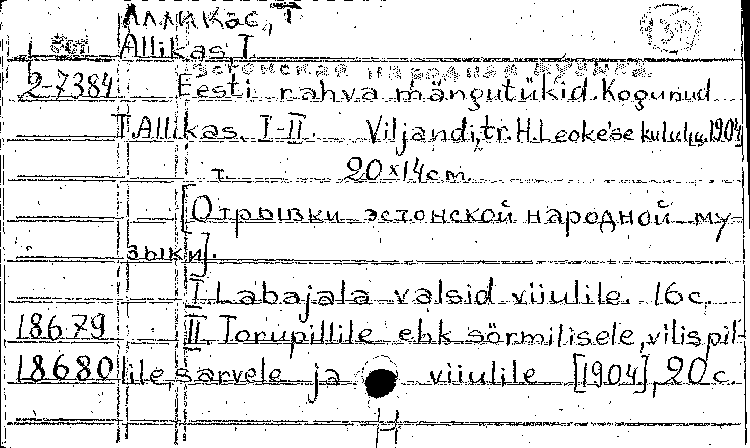 Алликас, Т
Allikas T.
эстонская народная музыка
2-7384 Eesti rahva mängutükid. Kogunud
T. Allikas. I-II. Viljandi, tr. H. Leoke'se kulul, 1904
т. 20x14cm
[Отрывки эстонской народной му-
зыки].
I. Labajala valsid viiulile. 16 с.
18679 II. Torupillile ehk sõrmilisele, vilispil-
18680 lile sarvele ja viiulile [1904], 20 с.